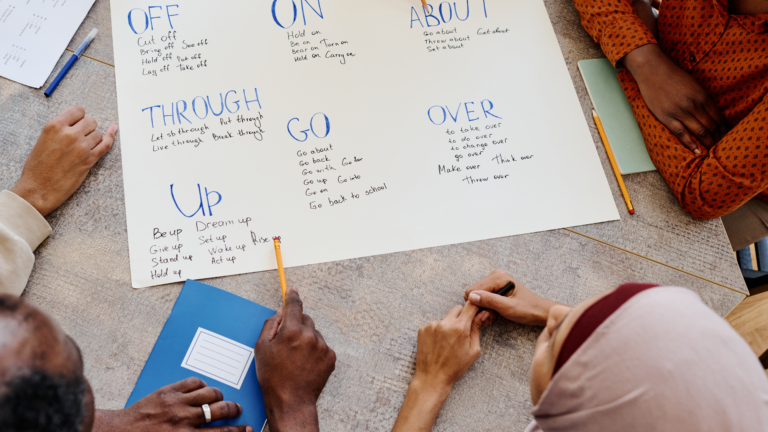 OFF
Cut off
Bring off See off
Hold off Put off
Lay off Take off
ON
Hold on
Be on
Bear on Turn on
Hold on Carry on
ABOUT
Go about
Throw about Get about
Set about
THROUGH
Let sb through Put through
Live through Break through
GO
Go about
Go back
Go with Go for
Go up Go into
Go on
Go back to school
OVER
to take over
to do over
to change over
go over
Make over Think over
Throw over
UP
Be up Dream up
Give up Set up Rise up
Stand up Wake up
Hold up Act up